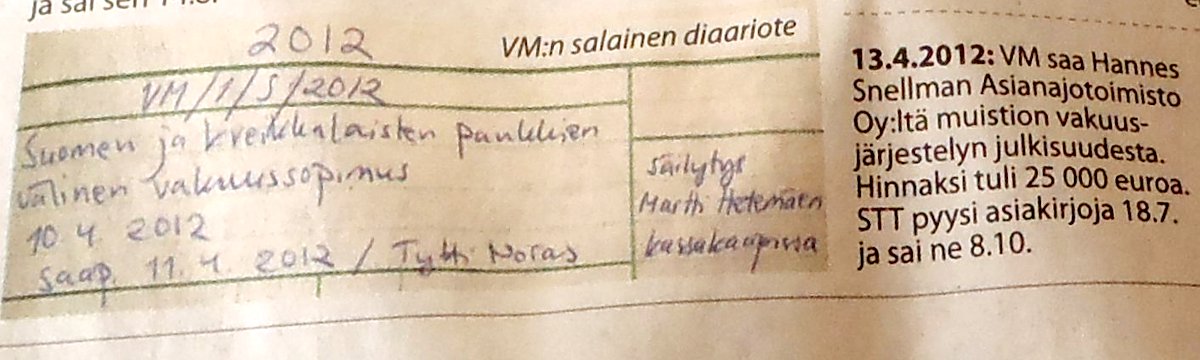 ja sai sen
2012
VM:n salainen diaariote
VM/1/S/2012
Suomen ja kreikkalaisten pankkien
välinen vakuussopimus
10.4.2012
saap. 11.4.2012 / Tytti Noras
säilytys
Martti Hetemäen
kassakaapissa
13.4.2012: VM saa Hannes
Snellman Asianajotoimisto
Oy:ltä muistion vakuus-
järjestelyn julkisuudesta.
Hinnaksi tuli 25 000 euroa.
STT pyysi asiakirjoja 18.7.
ja sai ne 8.10.